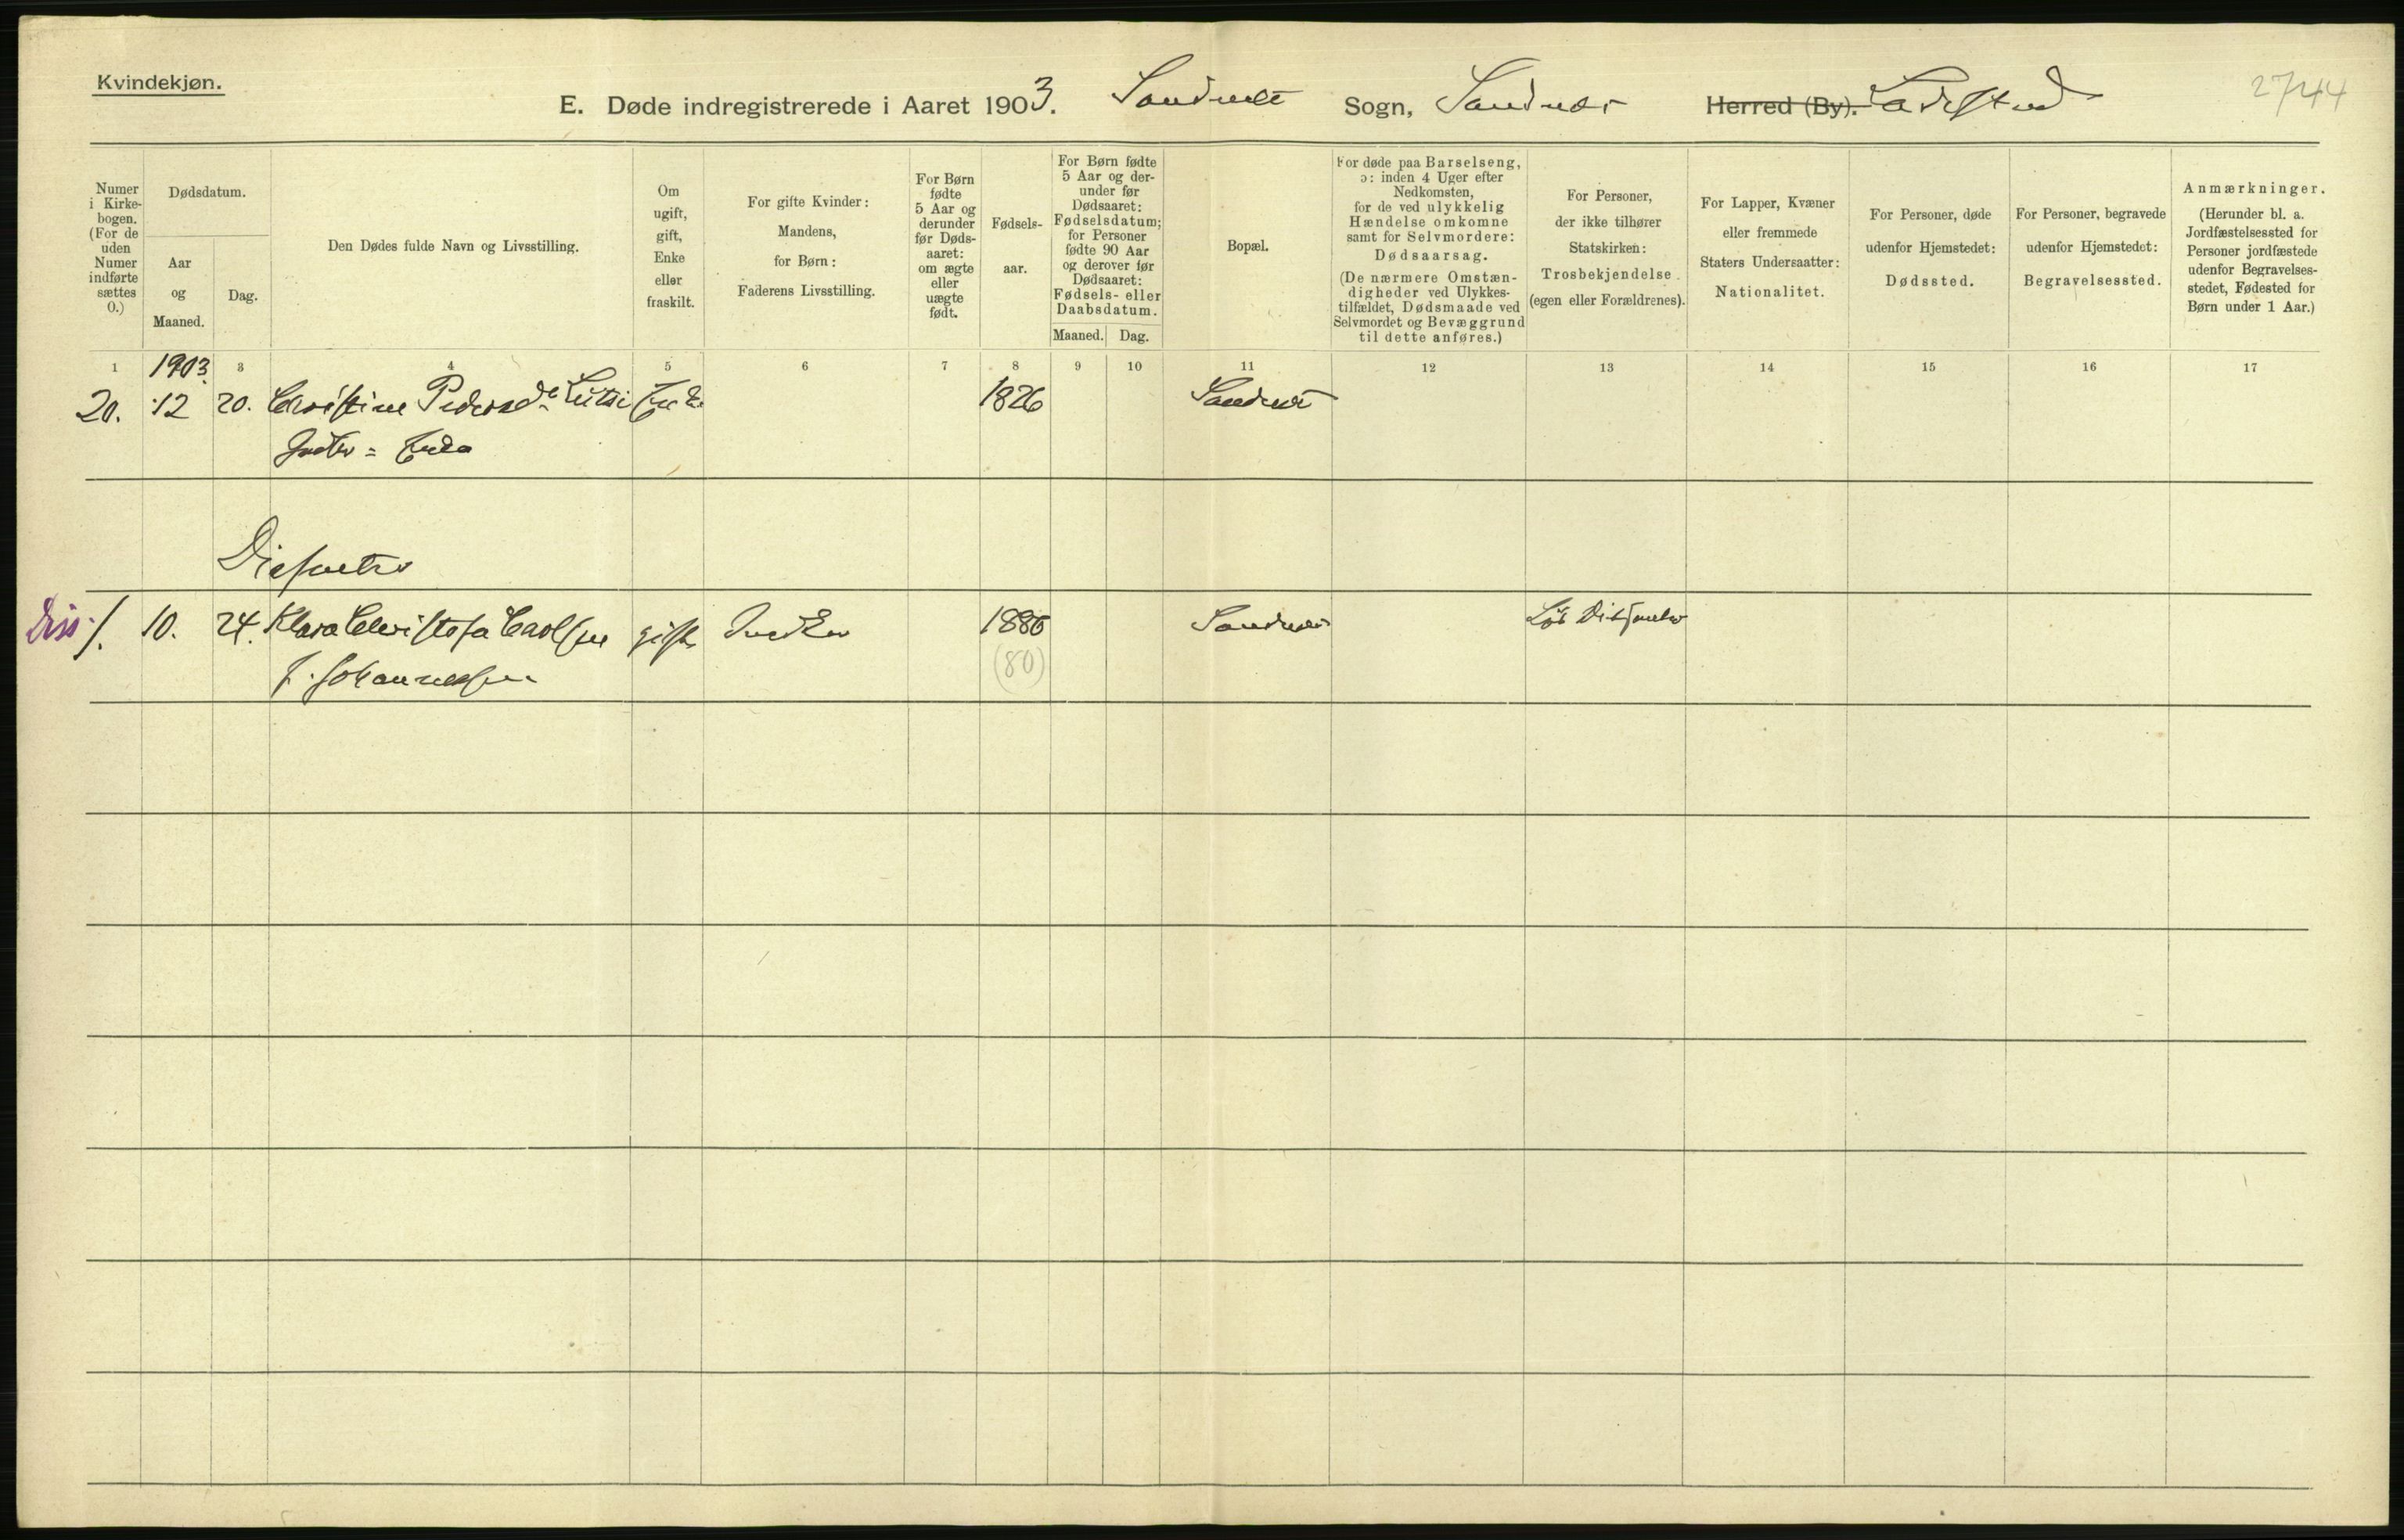 Kvindekjøn.
E. Døde indregistrerede i Aaret 1903. Sandnes Sogn, Sandnes Herred (By). Ladested
2744
Numer i Kirkebogen. (For de uden Numer indførte sættes 0.)
Dødsdatum.
Aar og Maaned.
Dag.
Den Dødes fulde Navn og Livsstilling.
Om ugift, gift, Enke eller fraskilt.
For gifte Kvinder: Mandens, for Børn: Faderens Livsstilling.
For Børn fødte 5 Aar og derunder før Dødsaaret: om ægte eller uægte født.
Fødselsaar.
For Børn fødte 5 Aar og derunder før Dødsaaret: Fødselsdatum; for Personer fødte 90 Aar og derover før Dødsaaret: Fødsels- eller Daabsdatum.
Maaned. Dag.
Bopæl.
For døde paa Barselseng, ɔ: inden 4 Uger efter Nedkomsten, for de ved ulykkelig Hændelse omkomne samt for Selvmordere: Dødsaarsag. (De nærmere Omstændigheder ved Ulykkestilfældet, Dødsmaade ved Selvmordet og Bevæggrund til dette anføres.)
For Personer, der ikke tilhører Statskirken: Trosbekjendelse (egen eller Forældrenes).
For Lapper, Kvæner eller fremmede Staters Undersaatter: Nationalitet.
For Personer, døde udenfor Hjemstedet: Dødssted.
For Personer, begravede udenfor Hjemstedet: Begravelsessted.
Anmærkninger. (Herunder bl. a. Jordfæstelsessted for Personer jordfæstede udenfor Begravelsesstedet, Fødested for Børn under 1 Aar.)
1 1903. 3 4 5 6 7 8 9 10 11 12 13 14 15 16 17
20. 12 20. Christine Pedersd. Enke 1826 Sandnes
Enke
Dissentere
Diss 1. 10. 24. Klara Christofa Carlsen gift 1880 Sandnes Dissenter
f. Johannessen (80)